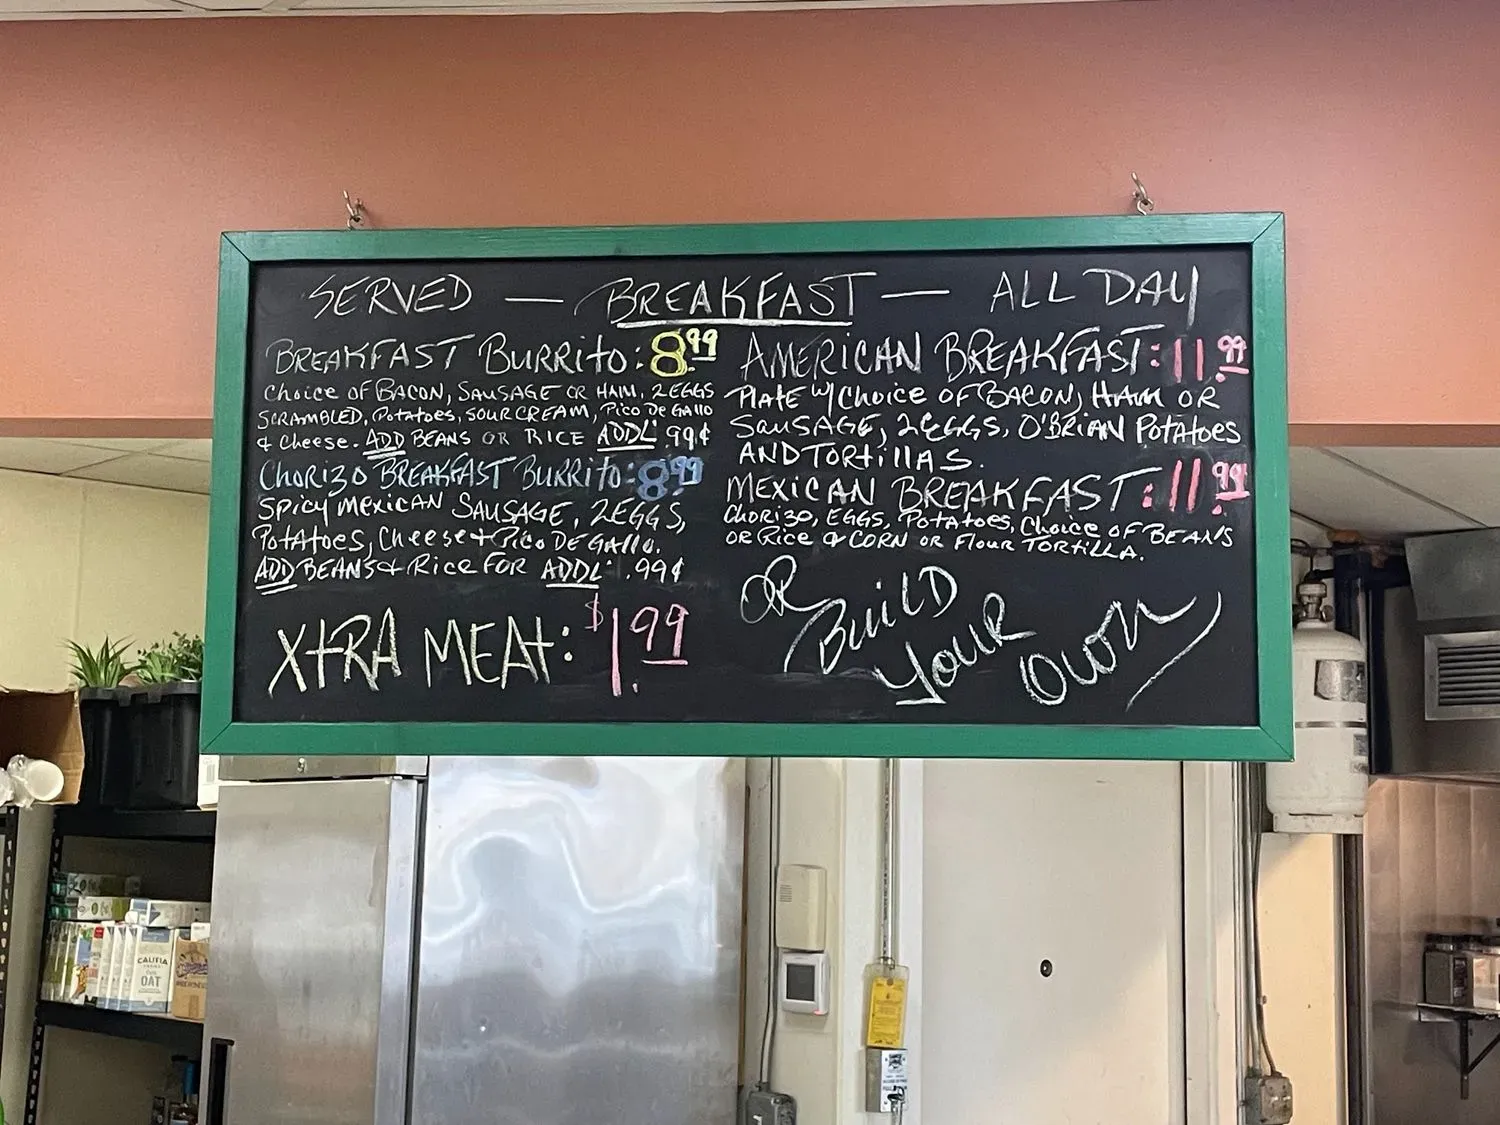 SERVED — BREAKFAST — ALL DAY
BREAKFAST BURRITO: 8.99
CHOICE OF BACON, SAUSAGE OR HAM, 2 EGGS
SCRAMBLED, POTATOES, SOUR CREAM, PICO DE GALLO
& CHEESE. ADD BEANS OR RICE ADDL' .99¢
CHORIZO BREAKFAST BURRITO: 8.99
SPICY MEXICAN SAUSAGE, 2 EGGS,
POTATOES, CHEESE + PICO DE GALLO.
ADD BEANS + RICE FOR ADDL' .99¢
XTRA MEAT: $1.99
AMERICAN BREAKFAST: 11.99
PLATE W/ CHOICE OF BACON, HAM OR
SAUSAGE, 2 EGGS, O'BRIAN POTATOES
AND TORTILLAS.
MEXICAN BREAKFAST: 11.99
CHORIZO, EGGS, POTATOES, CHOICE OF BEANS
OR RICE & CORN OR FLOUR TORTILLA.
OR BUILD
YOUR
OWN
CALIFIA
FARMS
OAT